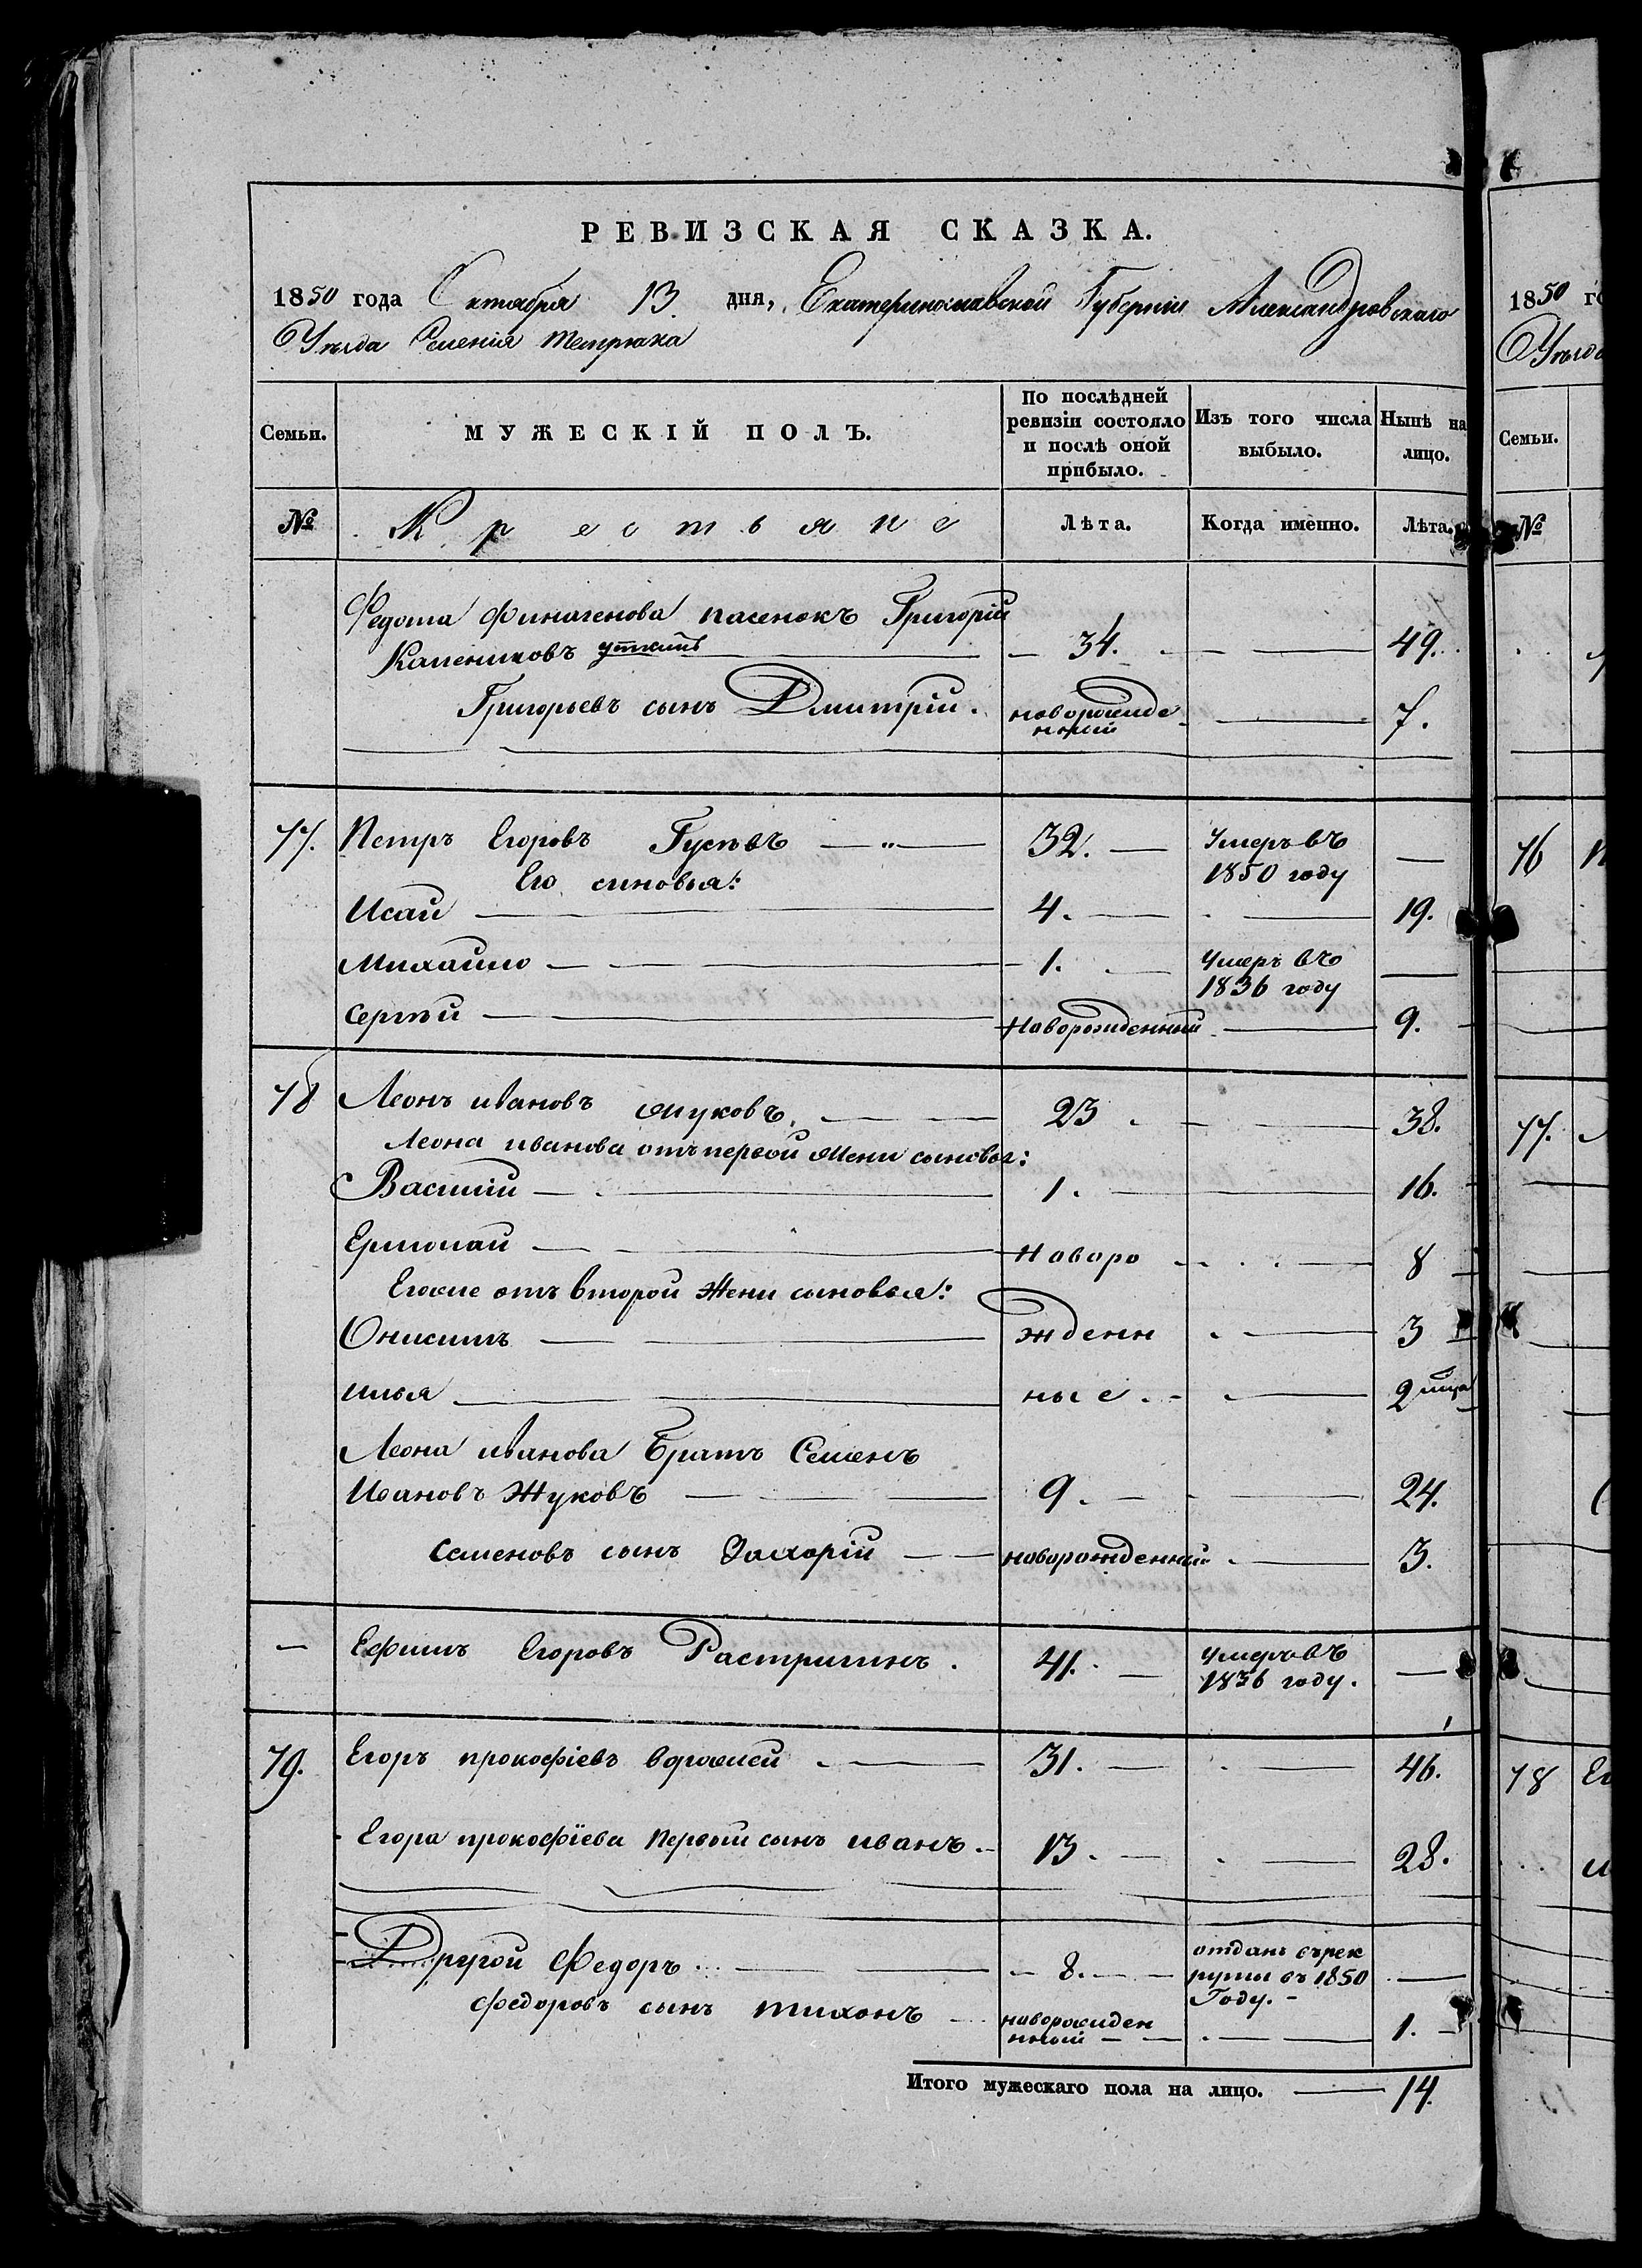 РЕВИЗСКАЯ СКАЗКА.
1850 года Октября 13 дня, Екатеринославской Губернiи Александровскаго
Уѣзда Селенiя Темрюка
Семьи.
МУЖЕСКIЙ ПОЛЪ.
По послѣдней ревизiи состояло и послѣ оной прибыло.
Изъ того числа выбыло.
Нынѣ на лицо.
№
Крестьяне
Лѣта.
Когда именно.
Лѣта.
Федота Финагенова пасенокъ Григорiй
Капениковъ 34. 49.
Григорьевъ сынъ Дмитрiй. новорожденный 7.
77. Петръ Егоровъ Гусѣвъ 32. Умеръ въ 1850 году
Его синовья:
Исай 4. 19.
Михайло 1. Умеръ въ 1836 году
Сергѣй Новорожденный 9.
78 Леонъ ивановъ Жуковъ. 23 38.
Леона иванова отъ первой Жени сыновья:
Василiй 1. 16.
Ермолай Новоро 8
Егоже отъ второй Жени сыновья:
Онисимъ жденн 3
илья ные 2
Леона иванова Братъ Семенъ
Ивановъ Жуковъ 9. 24.
Семеновъ сынъ Захарiй новорожденный 3.
Ефимъ Егоровъ Растригинъ. 41. Умеръ въ 1836 году.
79. Егоръ прокофiевъ 31. 46.
Егора прокофiева Первой сынъ иванъ. 13. 28.
Другой Федоръ 8. отданъ въ рекруты въ 1850 Году.
Федоровъ сынъ тихонъ новорожденный 1.
Итого мужескаго пола на лицо. 14.
1850
Семьи.
№
76
77.
78